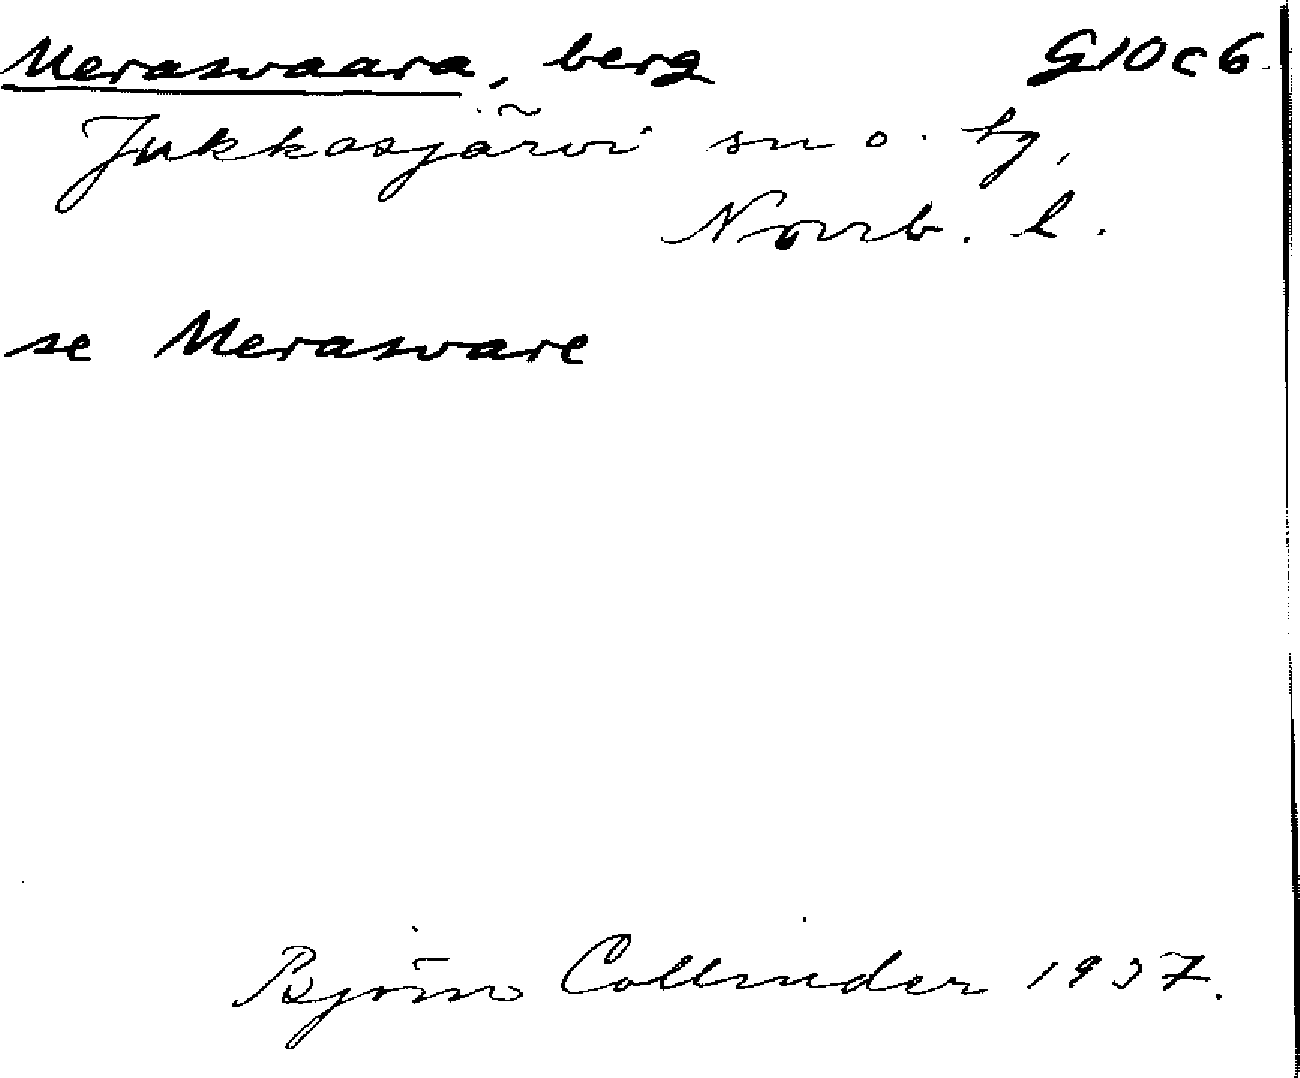 Merasvaara, berg G10c6
Jukkasjärvi sn o. tg,
Norrb. l.
se Merasvare
Björn Collinder 1937.